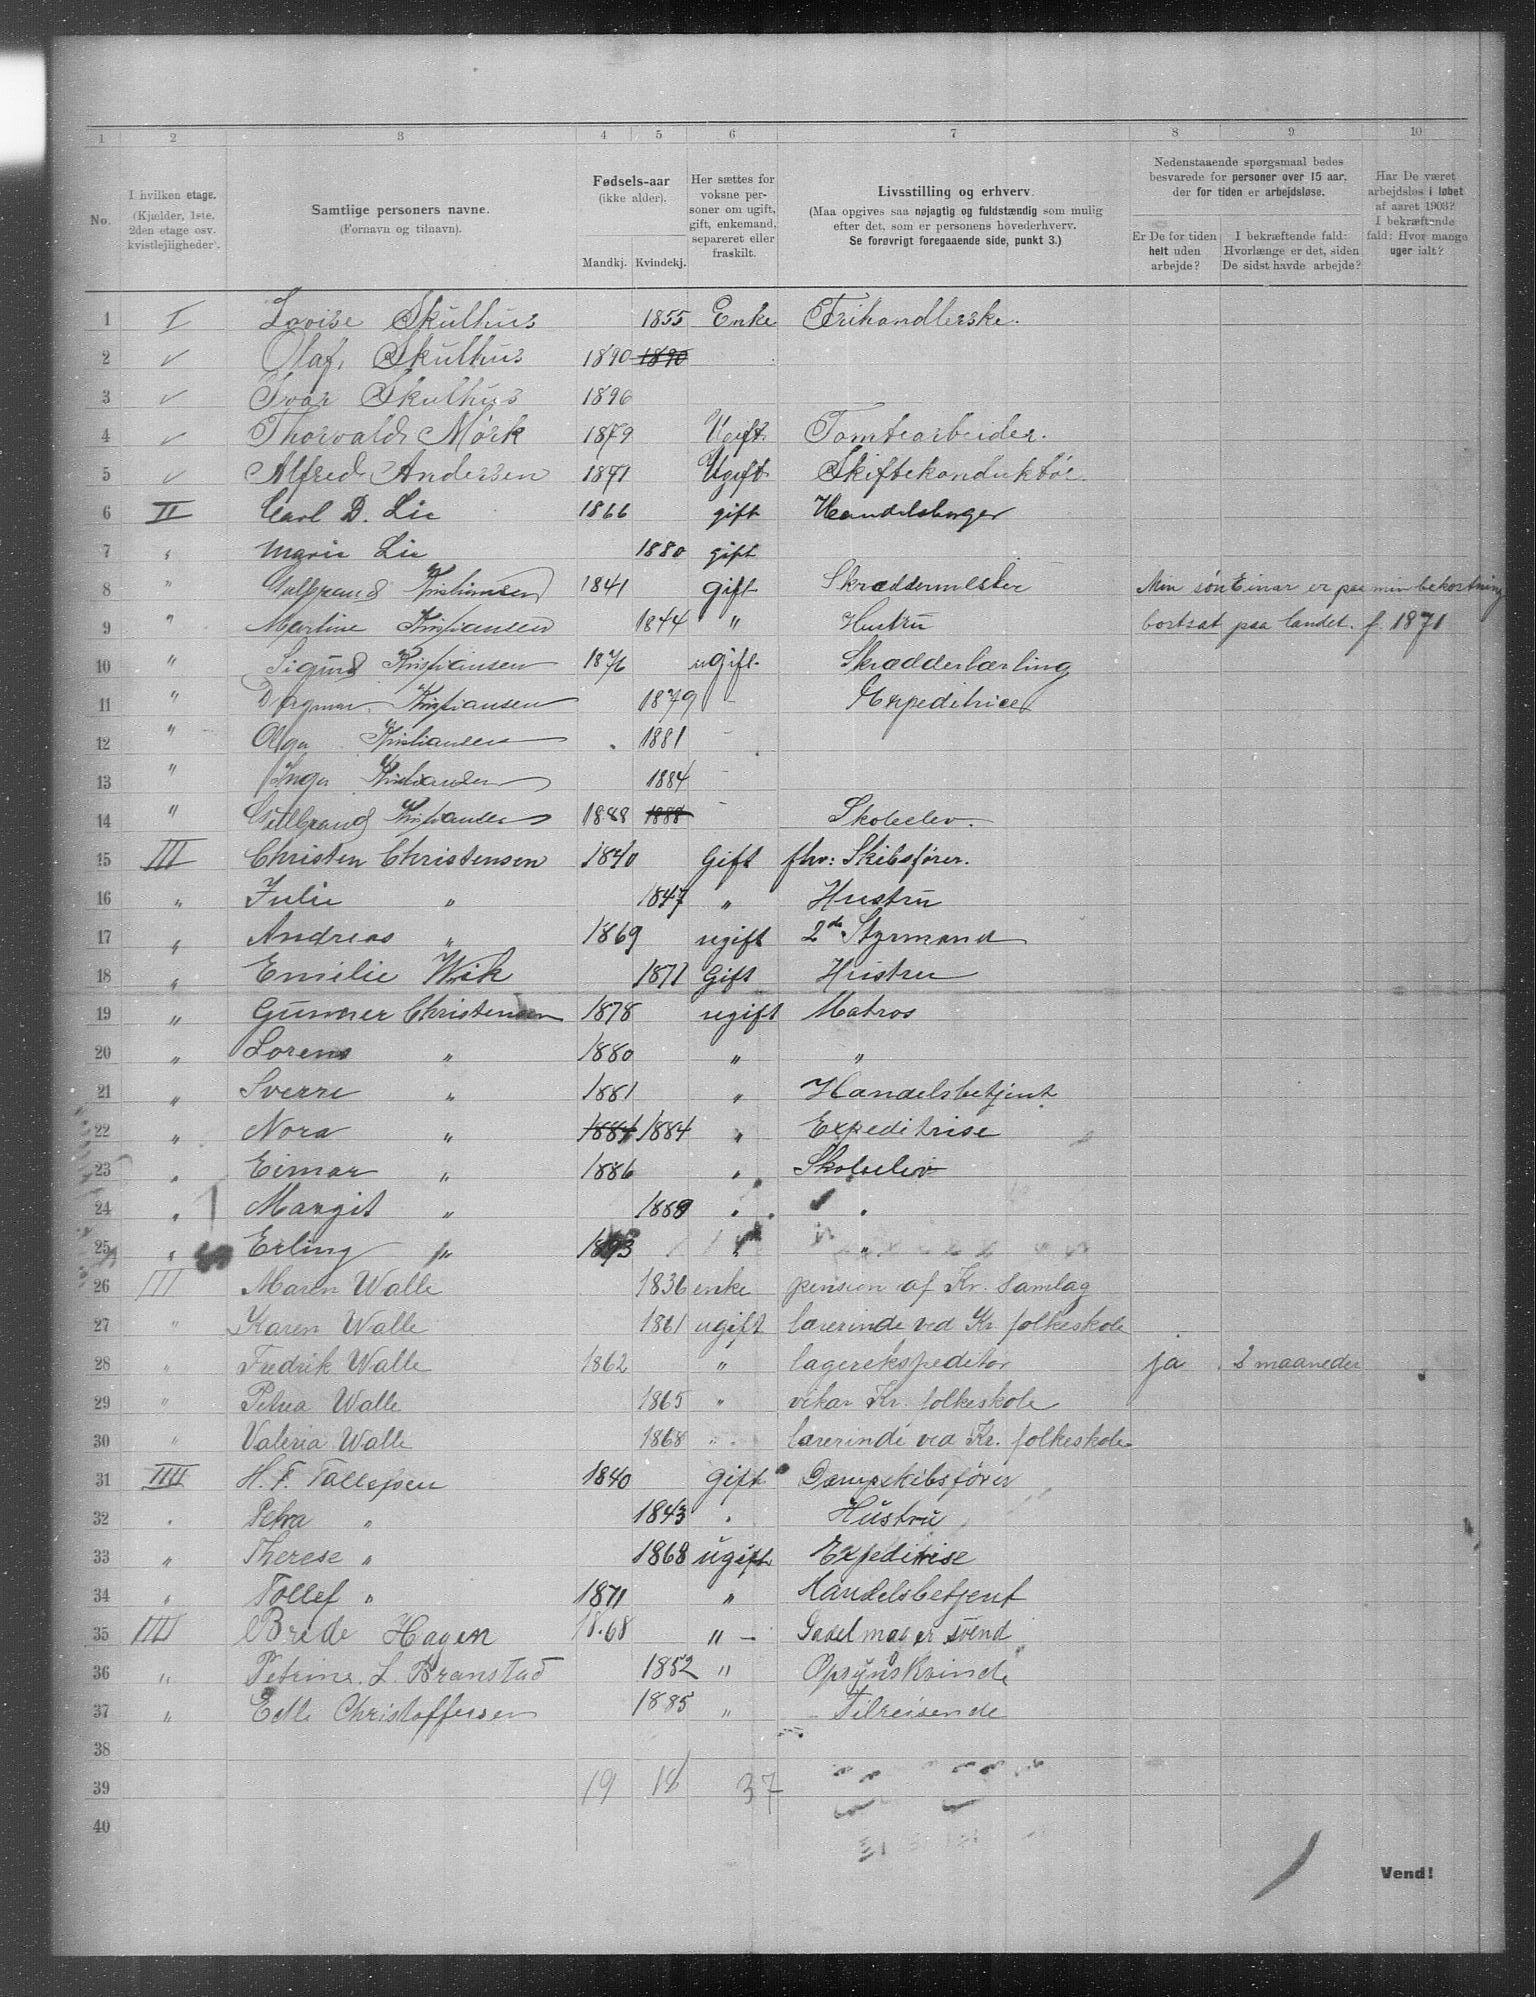 1 2 3 4 5 6 7 8 9 10
No.
I hvilken etage.
(Kjælder, 1ste, 2den etage osv. kvistlejligheder).
Samtlige personers navne.
(Fornavn og tilnavn).
Fødsels-aar
(ikke alder).
Mandkj. Kvindekj.
Her sættes for voksne personer om ugift, gift, enkemand, separeret eller fraskilt.
Livsstilling og erhverv.
(Maa opgives saa nøjagtig og fuldstændig som mulig efter det, som er personens hovederhverv.
Se forøvrigt foregaaende side, punkt 3.)
Nedenstaaende spørgsmaal bedes besvarede for personer over 15 aar, der for tiden er arbejdsløse.
Er De for tiden helt uden arbejde?
I bekræftende fald: Hvorlænge er det, siden De sidst havde arbejde?
Har De været arbejdsløs i løbet af aaret 1903? I bekræftende fald: Hvor mange uger ialt?
1 I Lovise Skulhus 1855 Enke Frihandlerske.
2 ✓ Olaf, Skulhus 1890 1890
3 ✓ Ivar Skulhus 1896
4 ✓ Thorvald Mörk 1879 Ugift Tomtearbeider.
5 ✓ Alfred Andersen 1871 Ugift Skiftekonduktör.
6 II Carl D. Lie 1866 gift Handelsborger
7 " Marie Lie 1880 gift
8 " Gulbrand Kristiansen 1841 gift Skræddermester Min sön Einar er paa min bekostning
9 " Martine Kristiansen 1844 " Hustru bortsat paa landet. f. 1871
10 " Sigurd Kristiansen 1876 ugift Skrædderlærling
11 " Dagmar Kristiansen 1879 - Expeditrice
12 " Olga Kristiansen 1881 -
13 " Inga Kristiansen 1884 -
14 " Gulbrand Kristiansen 1888 1888 - Skoleelev.
15 III Christen Christensen 1840 Gift fhv: Skibsfører.
16 " Julie " 1847 " Hustru
17 " Andreas " 1869 ugift 2de Styrmand
18 " Emilie Wik 1871 Gift Hustru
19 " Gunner Christensen 1878 ugift Matros
20 " Lorens " 1880 " "
21 " Sverre " 1881 " Handelsbetjent
22 " Nora " 1884 1884 " Expeditrise
23 " Einar " 1886 " Skoleelev
24 " Margit " 1889 " "
25 " Erling " 1893 " "
26 III Maren Walle 1836 enke pension af Kr. Samlag
27 " Karen Walle 1861 ugift lærerinde ved Kr. folkeskole
28 " Fredrik Walle 1862 " lagerekspeditør ja 2 maaneder
29 " Petrea Walle 1865 " vikar Kr. folkeskole
30 " Valeria Walle 1868 " lærerinde ved Kr. folkeskole
31 IIII H. F. Tallefsen 1840 Gift Dampskibsfører
32 " Petra " 1843 " Hustru
33 " Therese " 1868 ugift Expeditrise
34 " Tollef " 1871 " Handelsbetjent
35 IIII Brede Hagen 1868 " - Sadelmagersvend
36 " Petrine L. Branstad 1852 " Opsynskvinde
37 " Edle Christoffersen 1885 " Tilreisende
38
39 19 18 37
40
Vend!